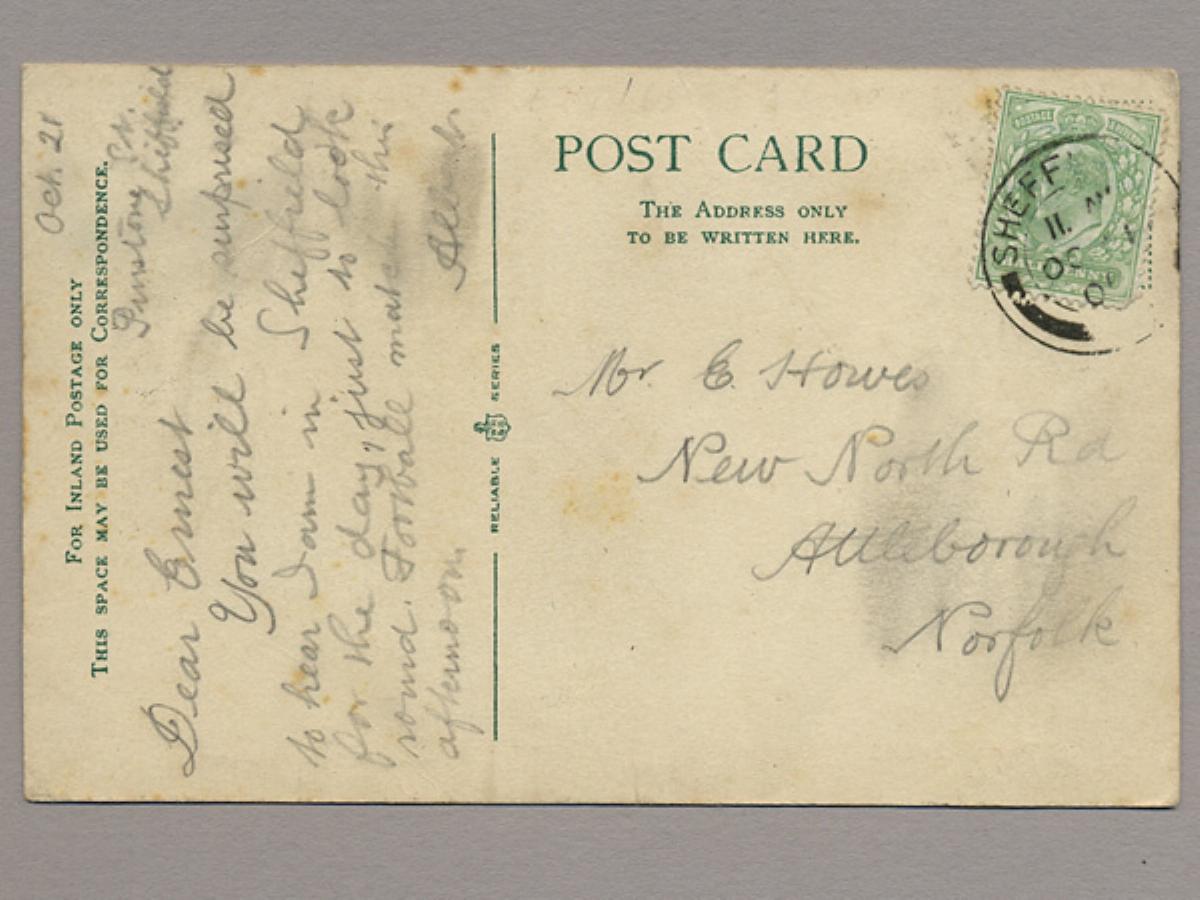 Oct. 21
FOR INLAND POSTAGE ONLY
THIS SPACE MAY BE USED FOR CORRESPONDENCE.
Pinstone St.
Sheffield
Dear Ernest
You will be surprised
to hear I am in Sheffield
for the day, just to look
round. Football match this
afternoon
Albert.
RELIABLE SERIES
POST CARD
THE ADDRESS ONLY
TO BE WRITTEN HERE.
POSTAGE
SHEFF
11. AM
OC
Mr. E. Howes
New North Rd
Attleborough
Norfolk